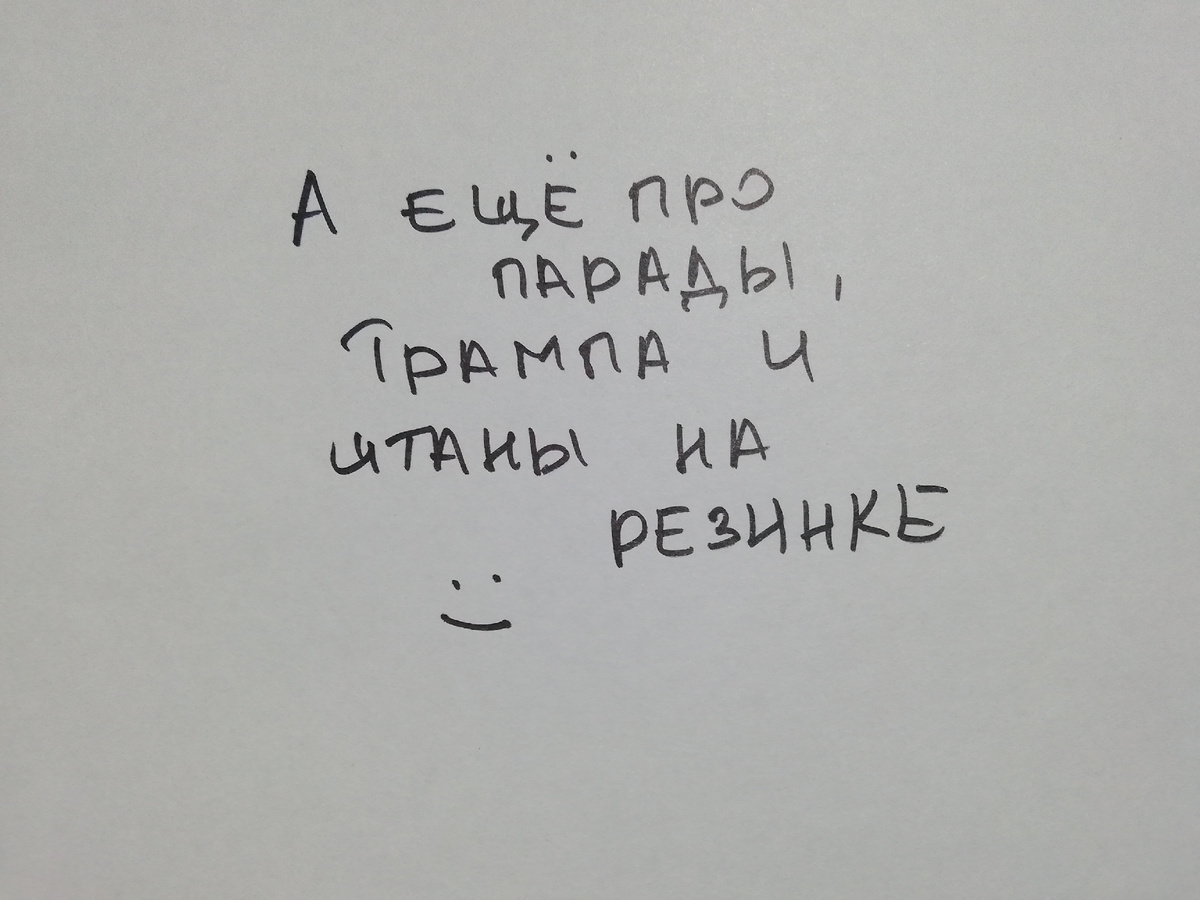 А ЕЩЁ ПРО
ПАРАДЫ,
ТРАМПА И
ШТАНЫ НА
РЕЗИНКЕ